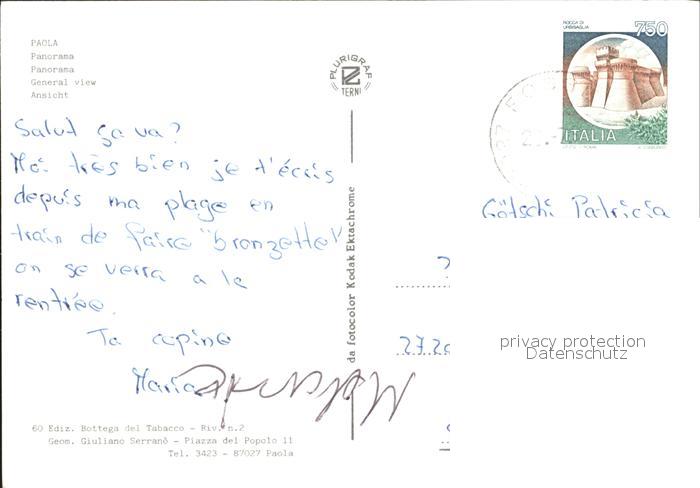 PAOLA
Panorama
Panorama
General view
Ansicht
PLURIGRAF
TERNI
ROCCA DI
URBISAGLIA
750
ITALIA
Salut ça va?
Moi très bien je t'écris
depuis ma plage en
train de faire "bronzette"
on se verra a la
rentrée.
Ta copine
Maria
da fotocolor Kodak Ektachrome
Götschi Patricia
privacy protection
Datenschutz
60 Ediz. Bottega del Tabacco - Riv. n.2
Geom. Giuliano Serranò - Piazza del Popolo 11
Tel. 3423 - 87027 Paola